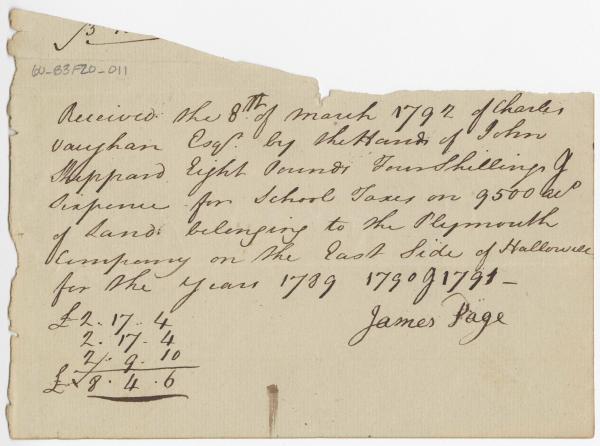 60-B3F20-011
Received the 8th of March 1792 of Charles
Vaughan Esqr. by the Hands of John
Sheppard Eight Pounds Four Shillings &
Sixpence for School Taxes on 9500 acs
of Land belonging to the Plymouth
Company on the East Side of Hallowell
for the Years 1789 1790 & 1791 —
James Page
£2. 17. 4
2. 17. 4
2. 9. 10
£ 8. 4. 6